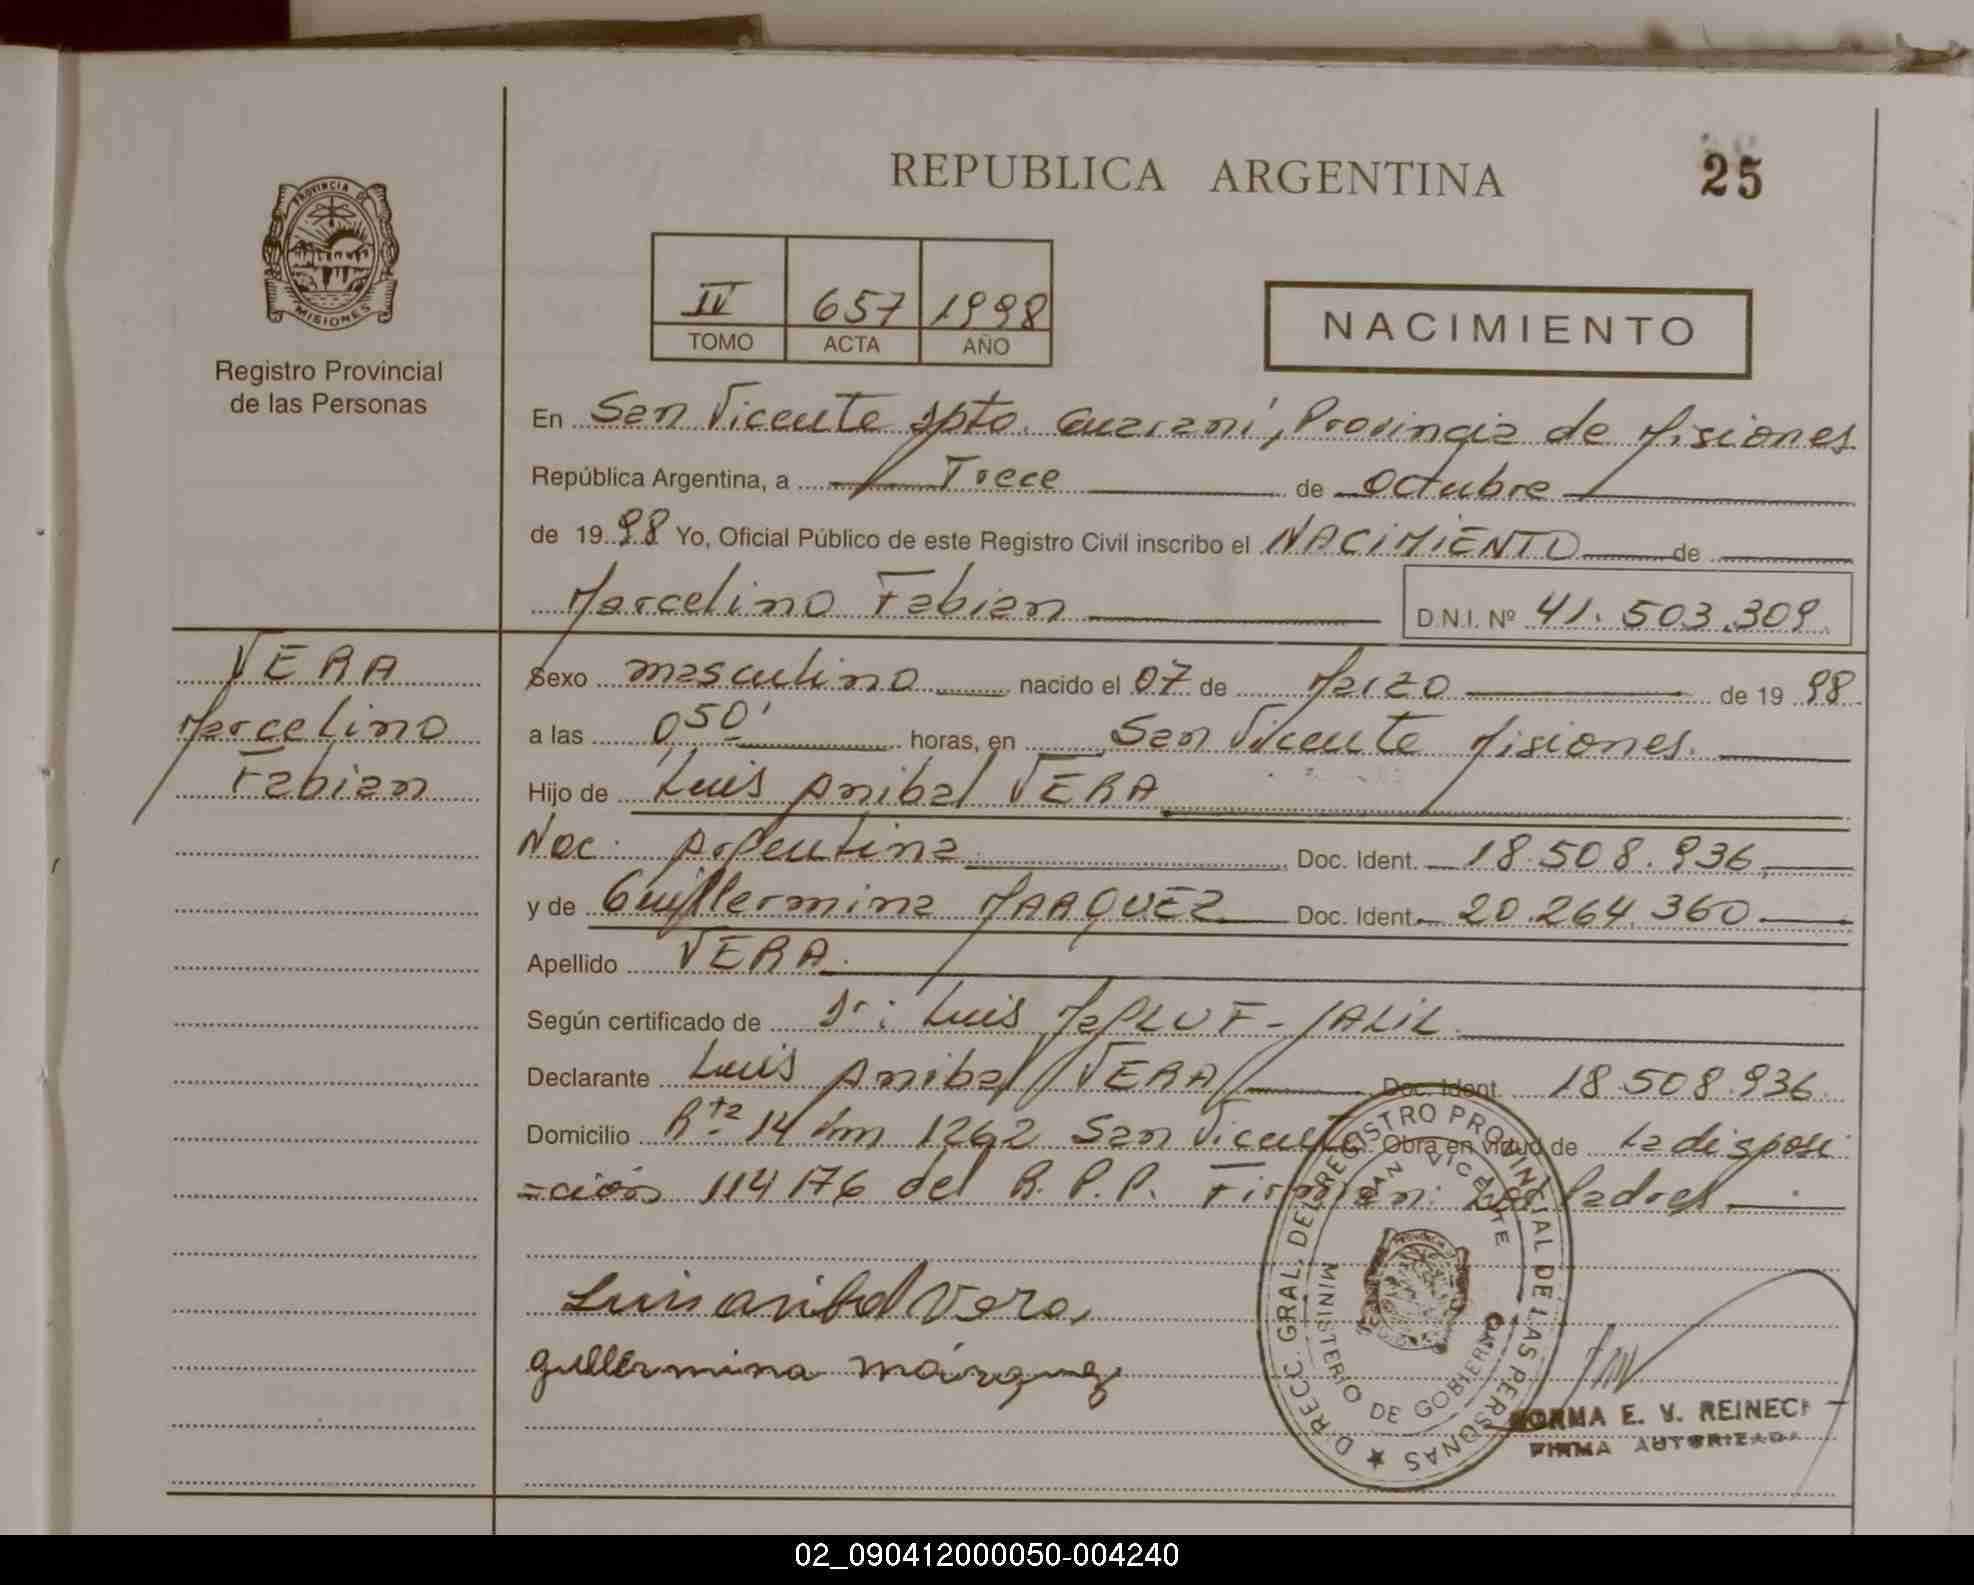 REPUBLICA ARGENTINA
25
PROVINCIA DE MISIONES
Registro Provincial
de las Personas
IV 657 1998
TOMO ACTA AÑO
NACIMIENTO
En San Vicente Dpto. Guaraní, Provincia de Misiones
República Argentina, a Trece de Octubre
de 1998 Yo, Oficial Público de este Registro Civil inscribo el NACIMIENTO de
Marcelino Fabian D.N.I. Nº 41.503.309.
VERA
Marcelino
Fabian
Sexo masculino nacido el 07 de Marzo de 1998
a las 0,50' horas, en San Vicente Misiones.
Hijo de Luis Anibal VERA
Nac: Argentina Doc. Ident. 18.508.936
y de Guillermina MARQUEZ Doc. Ident. 20.264.360
Apellido VERA.
Según certificado de Dr: Luis
Declarante Luis Anibal VERA Doc. Ident. 18.508.936
Domicilio Rta 14 km 1262 San Vicente Obra en virtud de la disposi
=ción 114176 del R.P.P. Firman: Los Padres
Luis anibal Vera
gullermina márquez
DIRECC. GRAL. DEL REGISTRO PROVINCIAL DE LAS PERSONAS
SAN VICENTE
MINISTERIO DE GOBIERNO
NORMA E. V.
FIRMA AUTORIZADA
02_090412000050-004240